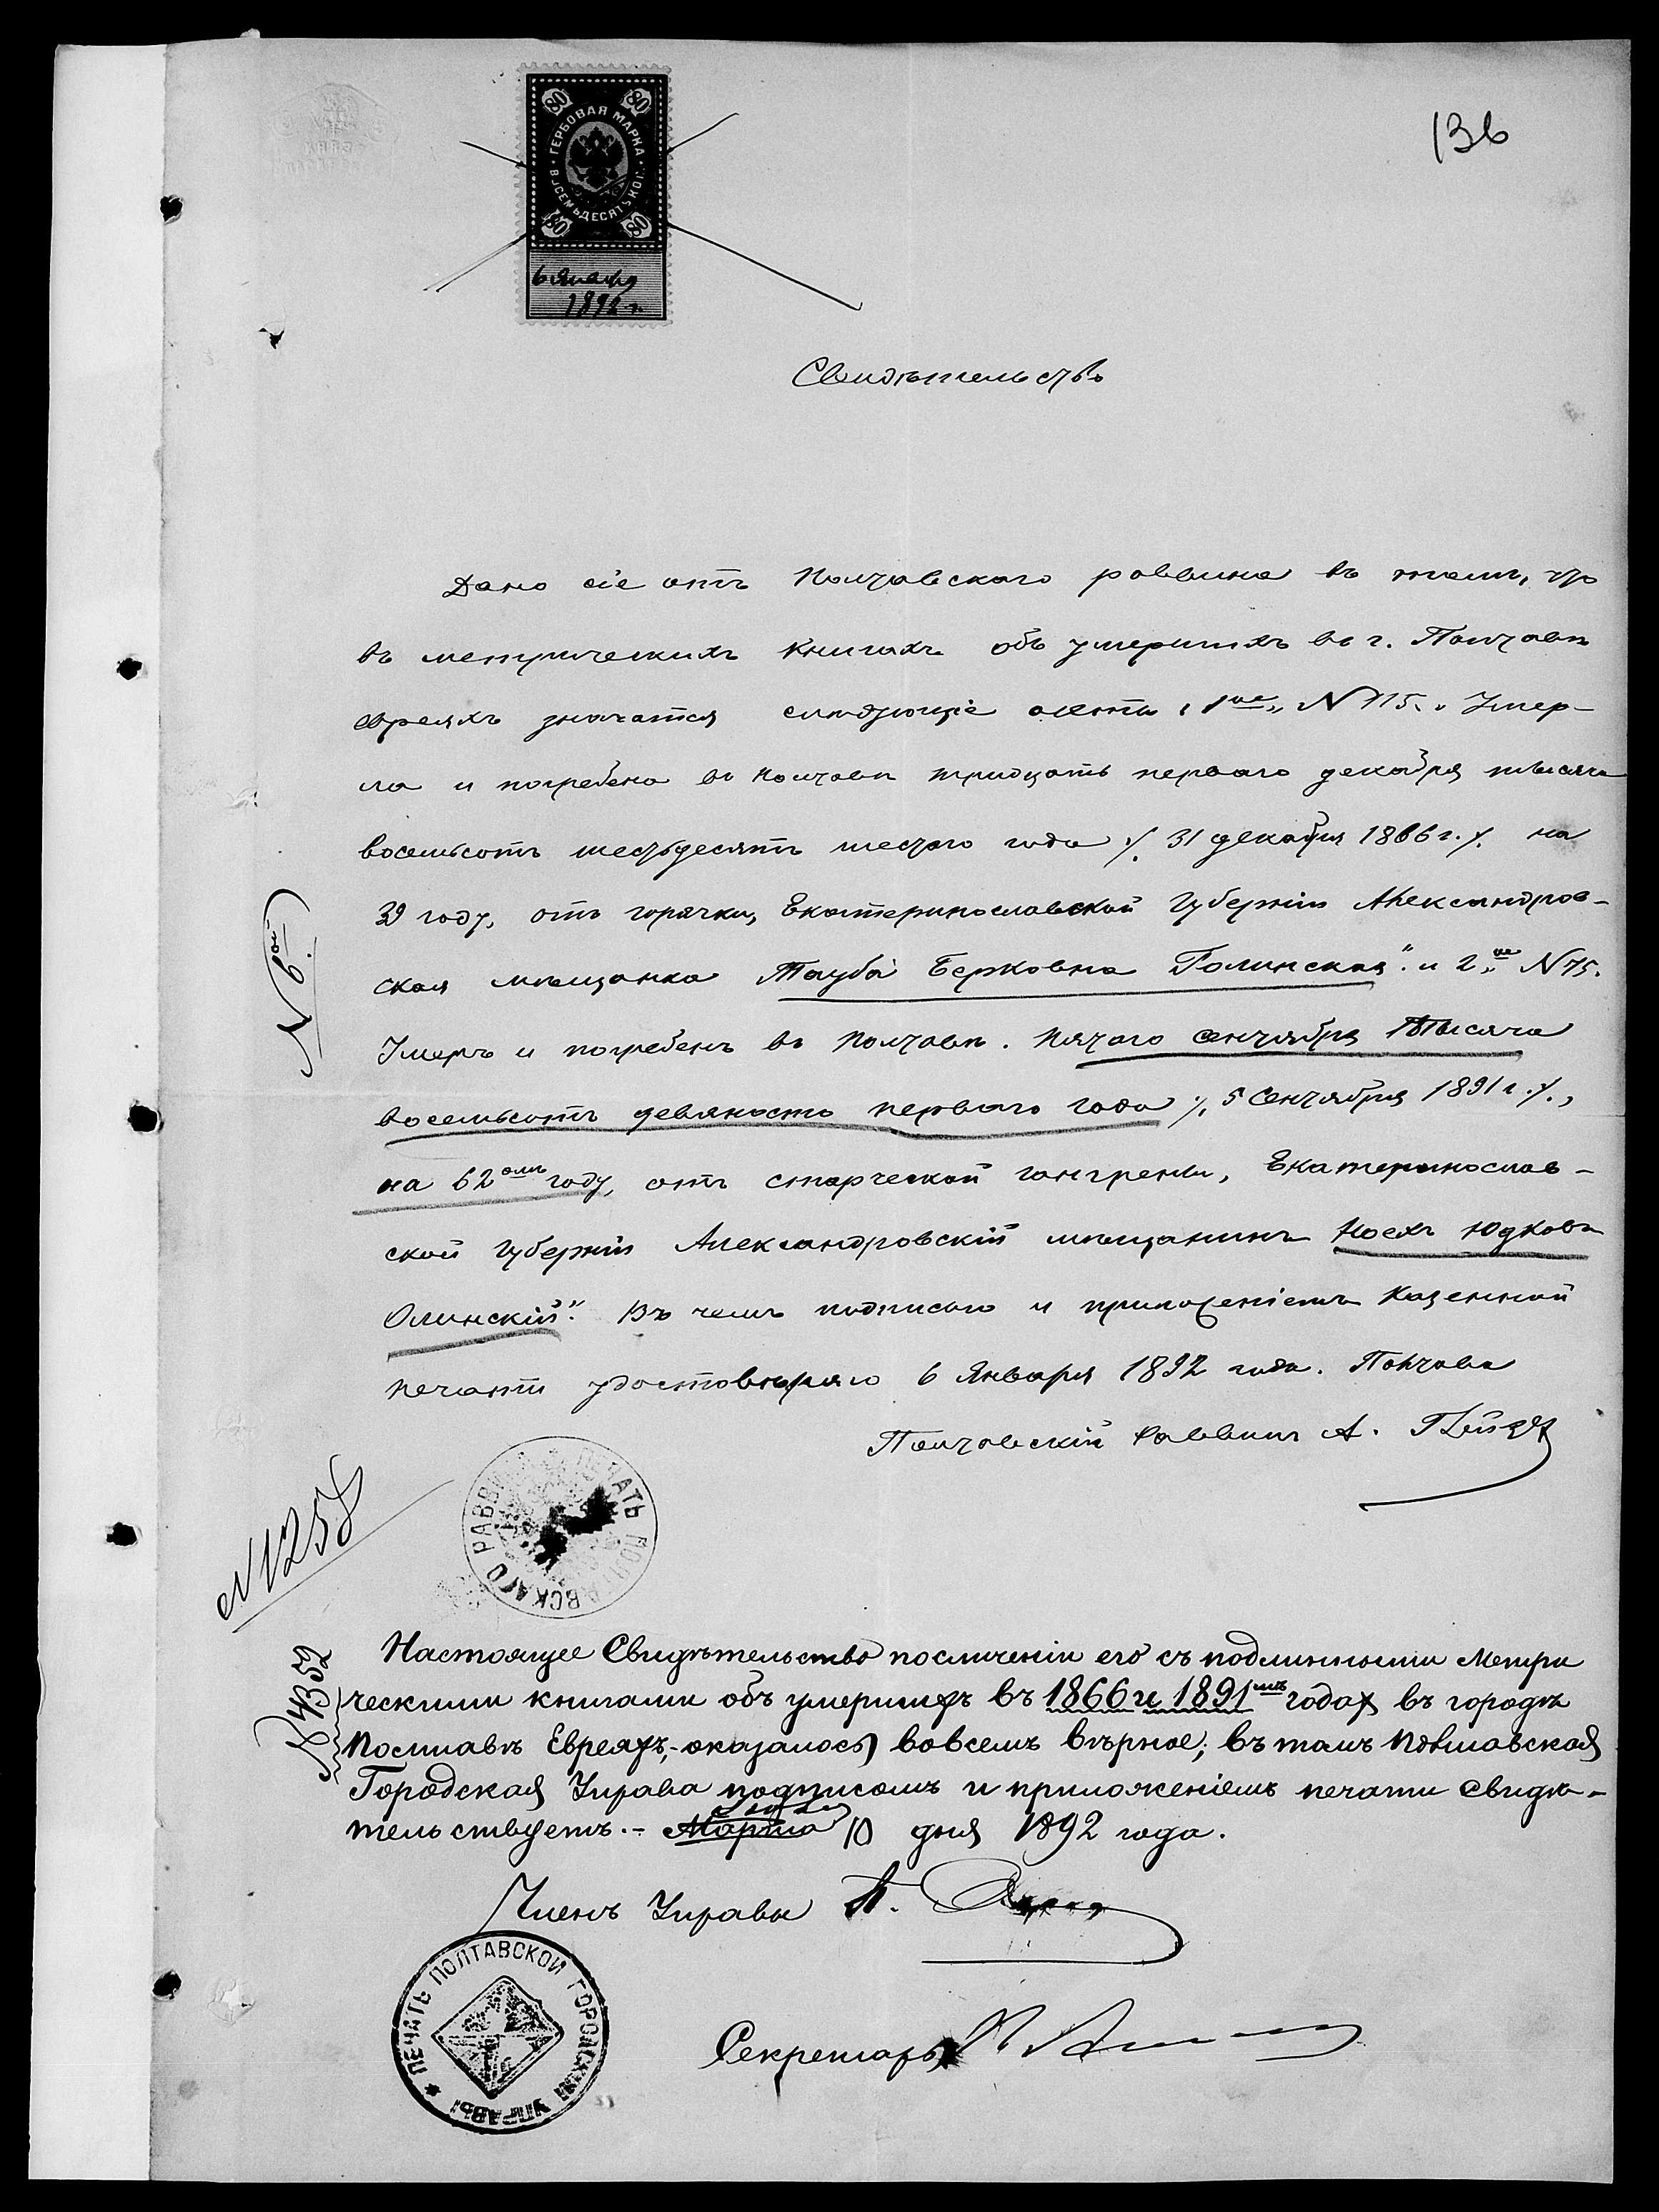 136
80 80
ГЕРБОВАЯ МАРКА
ВОСЕМЬДЕСЯТЪ КОП.
80 80
6 Января
1892 г.
Свидѣтельство
Дано сіе отъ Полтавскаго раввина въ томъ, что
въ метрическихъ книгахъ объ умершихъ въ г. Полтавѣ
евреяхъ значатся слѣдующіе акты, 1ый „N 115. „Умер-
ла и погребена въ Полтавѣ тридцать перваго декабря тысяча
восемьсотъ шестьдесятъ шестого года /. 31 декабря 1866 г. /. на
39 году, отъ горячки, Екатеринославской губерніи Александров-
ская мѣщанка Тауба Берковна Голинская". и 2ый N 75.
Умеръ и погребенъ въ Полтавѣ. Пятаго сентября тысяча
восемьсотъ девяносто перваго года /. 5 Сентября 1891 г. /.,
на 62омъ году, отъ старческой гангрены, Екатеринослав-
ской губерніи Александровскій мѣщанинъ Ноехъ Юдковъ
Олинскій". Въ чемъ подписью и приложеніемъ казенной
печати удостовѣряю 6 Января 1892 года. Полтава
Полтавскій Раввинъ А.
N 6ой.
N 1258
ПЕЧАТЬ ПОЛТАВСКАГО РАВВИНА
N 4352
Настоящее Свидѣтельство по сличеніи его съ подлинными Метри
ческими книгами объ умершихъ въ 1866 и 1891мъ годах въ городѣ
Полтавѣ Евреяхъ,- оказалось вовсемъ вѣрное; въ томъ Полтавская
Городская Управа подписомъ и приложеніемъ печати свидѣ-
тельствуетъ.- Марта 10 дня 1892 года.
Членъ Управы
ПЕЧАТЬ ПОЛТАВСКОЙ ГОРОДСКОЙ УПРАВЫ
Секретарь